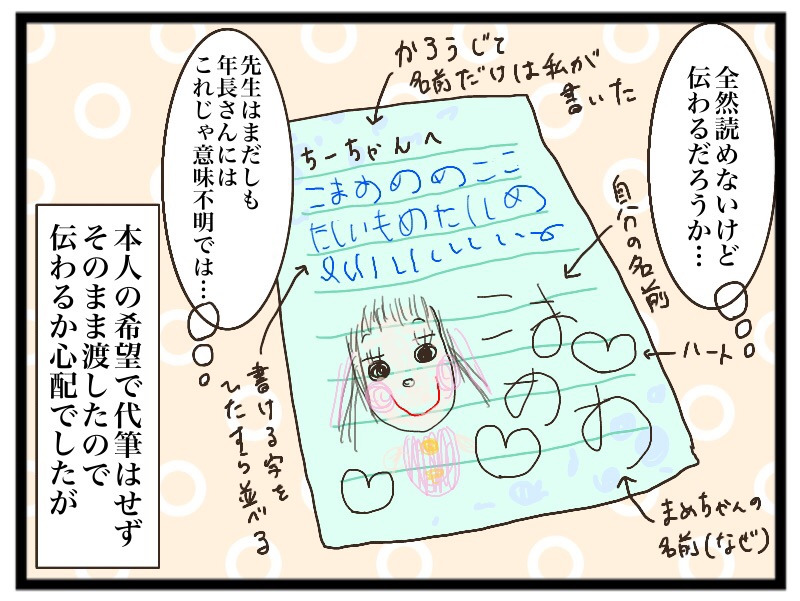 全然読めないけど
伝わるだろうか…
かろうじて
名前だけは私が
書いた
ちーちゃんへ
こまめのめここ
たしいもめたしじめ
自分の名前
こま
め
ハート
め
まめちゃんの
名前(なぜ)
書ける字を
ひたすら並べる
先生はまだしも
年長さんには
これじゃ意味不明では…
本人の希望で代筆はせず
そのまま渡したので
伝わるか心配でしたが